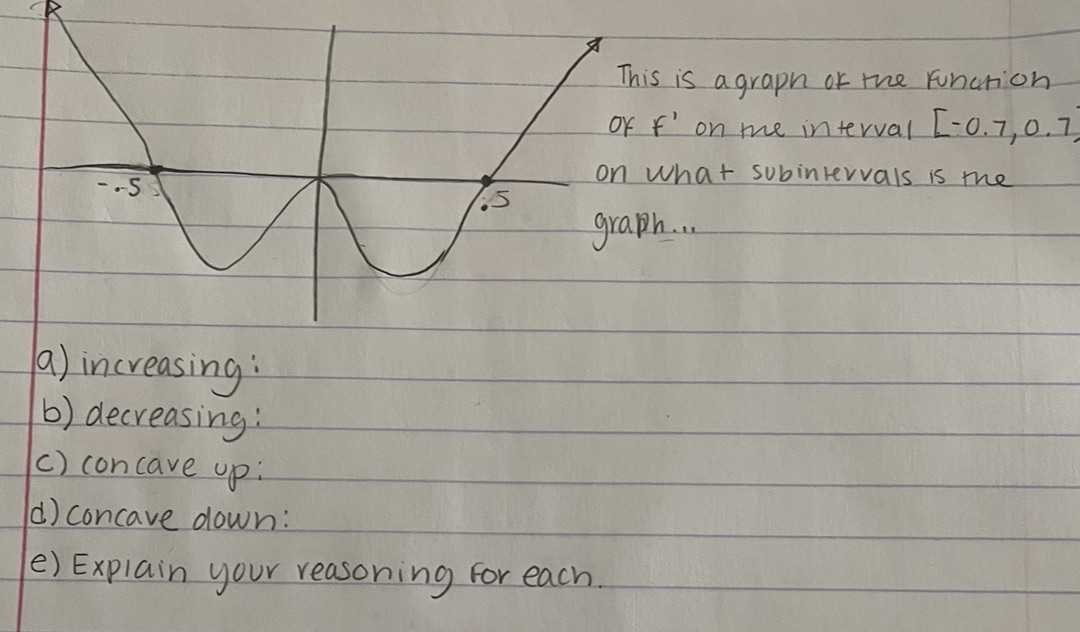 This is a graph of the function
of f' on the interval [-0.7, 0.7]
on what subintervals is the
graph...
-.5
.5
a) increasing:
b) decreasing:
c) concave up:
d) concave down:
e) Explain your reasoning for each.